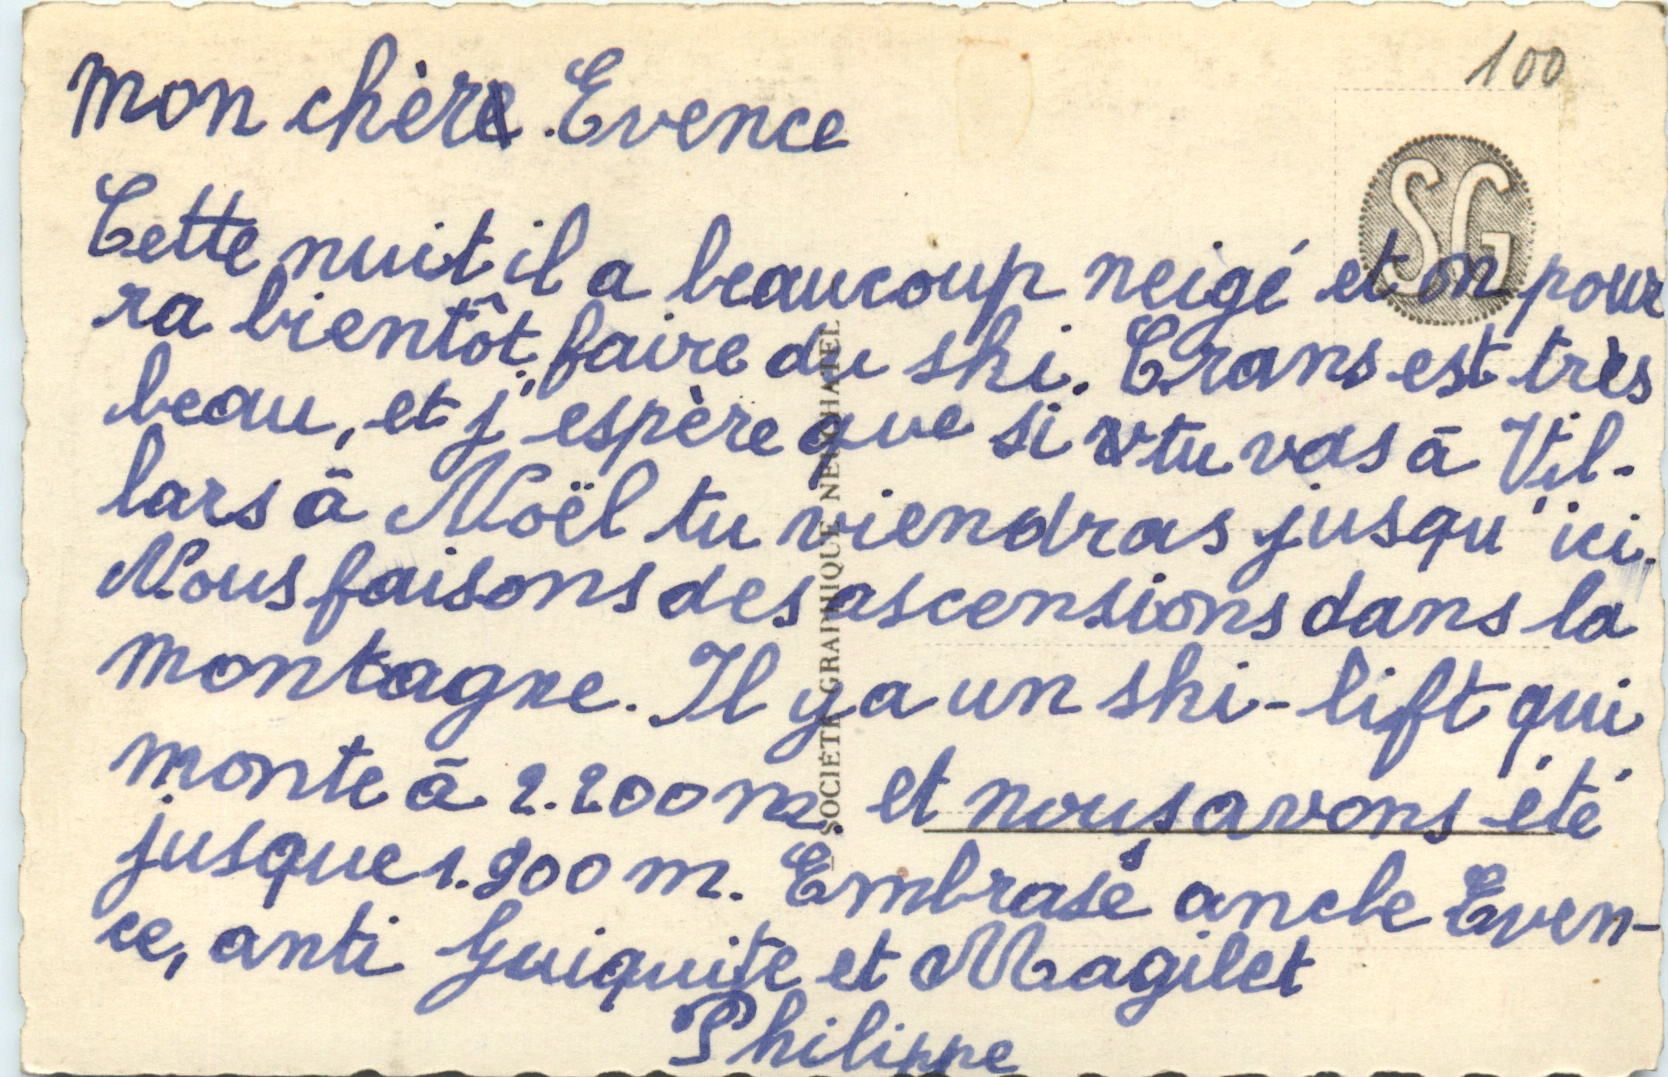 100
SG
mon chère Evence
Cette nuit il a beaucoup neigé et on pour
ra bientôt faire du ski. Crans est très
beau, et j'espère que si tu vas à Vil-
lars à Noël tu viendras jusqu'ici.
Nous faisons des ascensions dans la
montagne. Il y a un ski-lift qui
monte à 2.200 m. et nous avons été
jusque 1.900 m. Embrase ancle Even-
ce, anti Guiquite et Magilet
Philippe
SOCIÉTÉ GRAPHIQUE NEUCHATEL